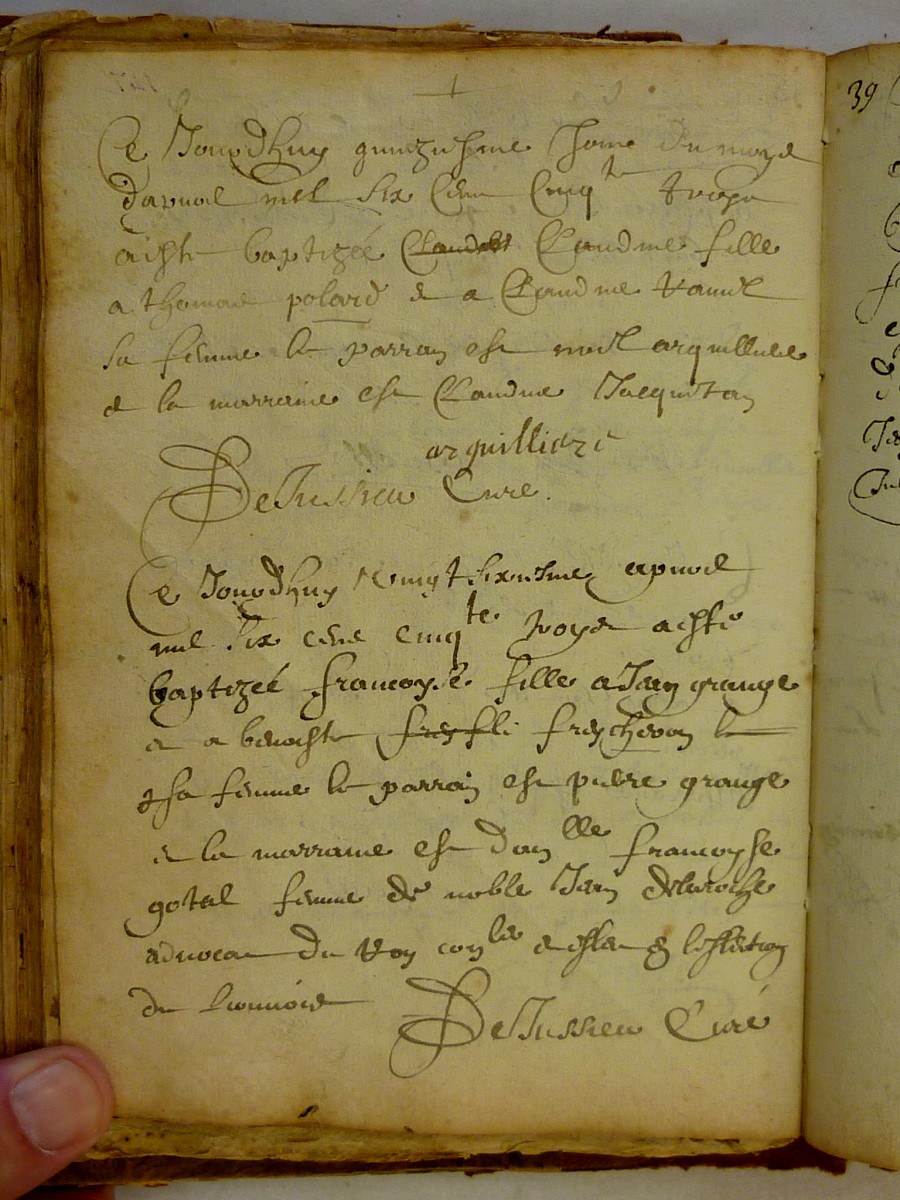 Ce Jourdhuy quinziesme Jour du moys
dapvril mil six cens cinq.te troys
a esté baptizée Claudine fille
a thomas polard & a Claudine
sa femme le parrain est noel arquilliere
& la marraine est Claudine Jacquetan
arquilliere
DeJussieu Curé.
Ce Jourdhuy vingt sixiesme apvril
mil six cens cinq.te troys a esté
baptizée francoyse fille a Jan grange
& a benoiste freychevon
& sa femme le parrain est pierre grange
& la marraine est dam.lle francoyse
gotal femme de noble Jan delaroche
advocat du Roy con.ler & esleu en leslection
de lionnois
DeJussieu Curé
39